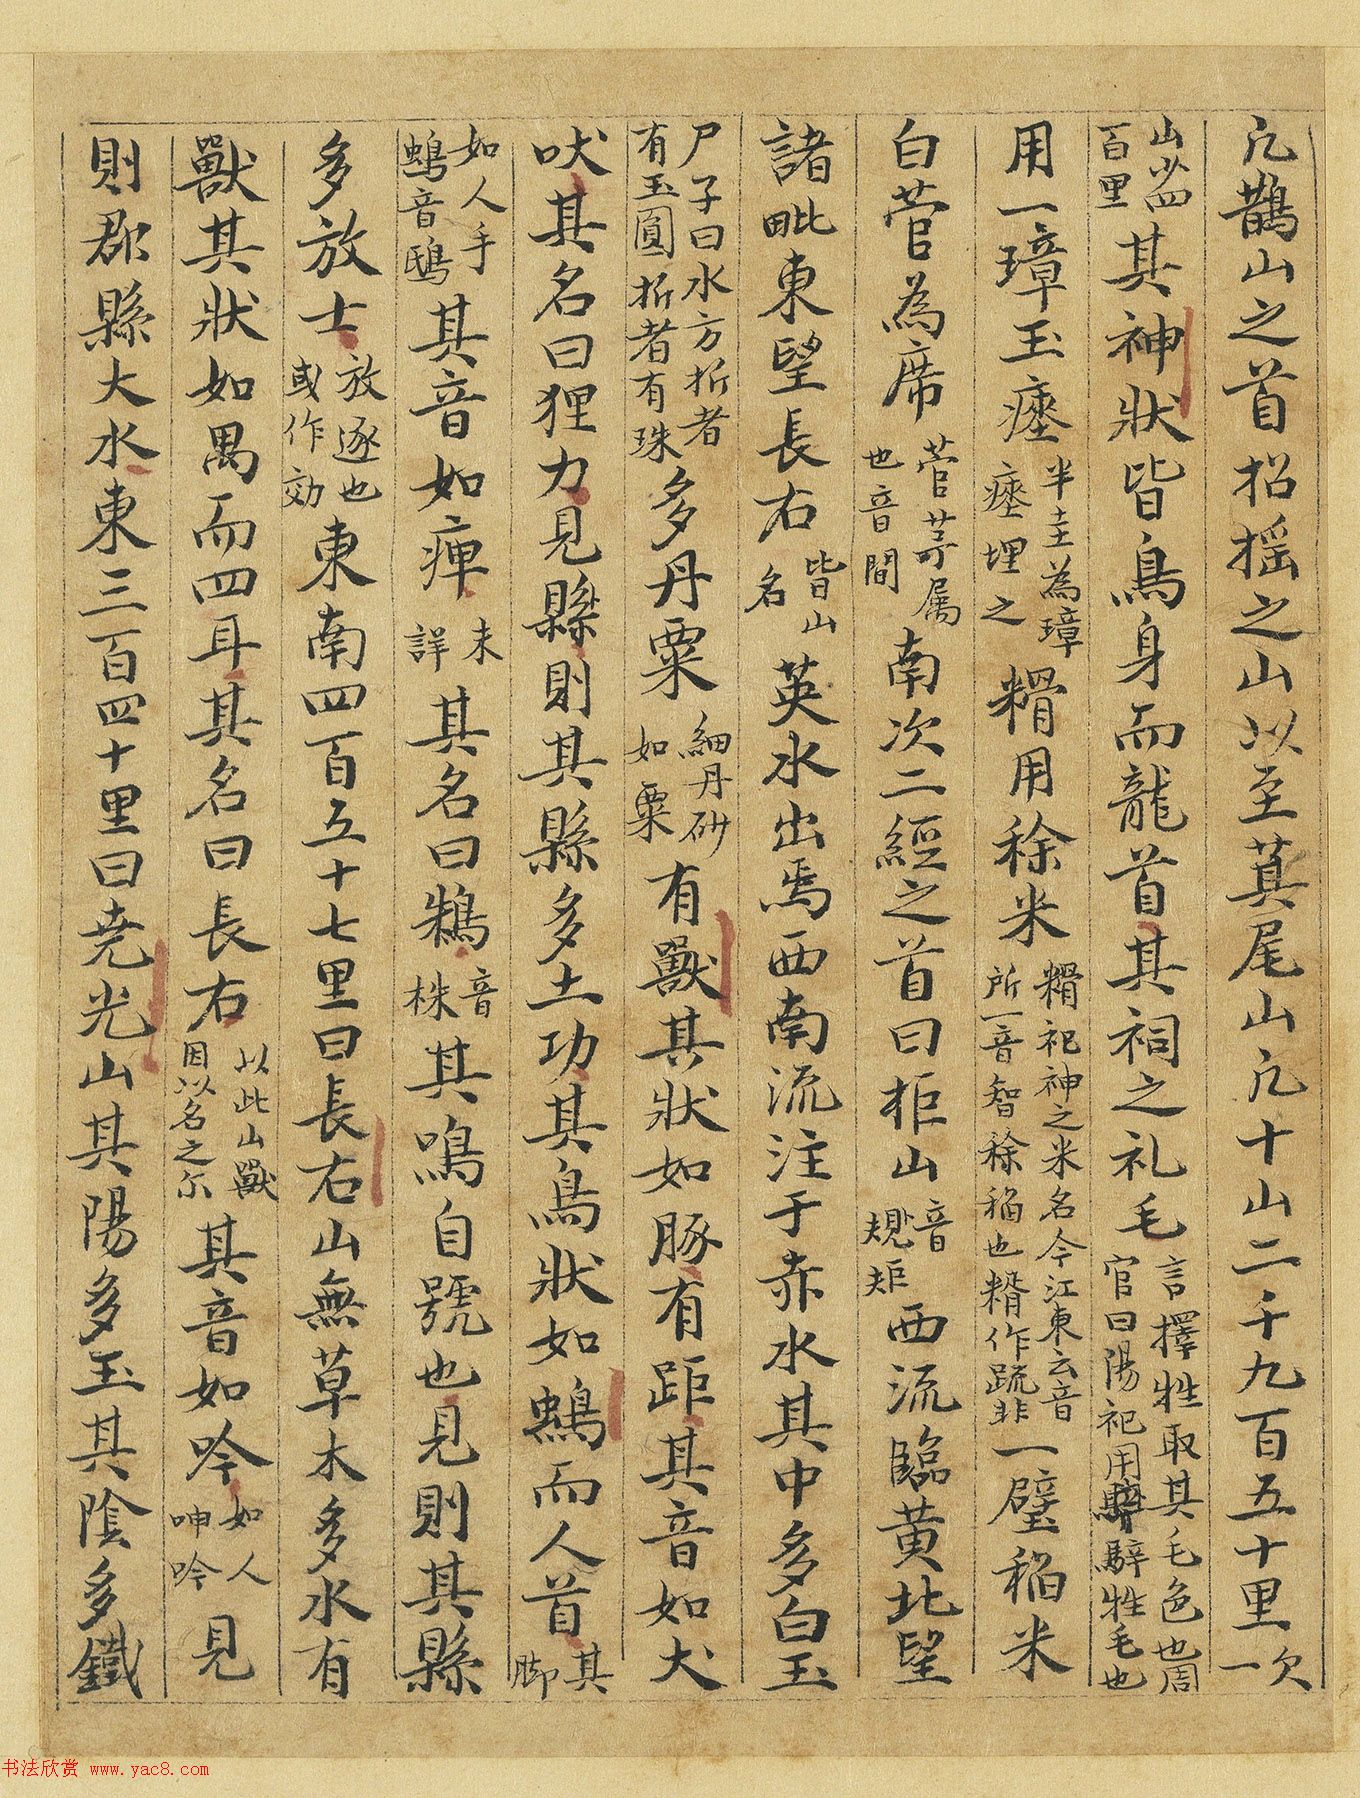 凢鵲山之首招摇之山以至萁尾山凢十山二千九百五十里一次
山㳒四百里其神狀皆鳥身而龍首其祠之礼毛言擇牲取其毛色也周官曰陽祀用騂牲毛也
用一璋玉瘞半圭為璋瘞埋之糈用稌米糈祀神之米名今江東云音所一音智稌稻也糈作䟽非一璧稻米
白菅為席菅茅属也音間南次二經之首曰柜山音䂓矩西流臨黄北望
諸毗東望長右皆山名英水出焉西南流注于赤水其中多白玉
尸子曰水方折者有玉圓折者有珠多丹粟細丹砂如粟有獸其狀如豚有距其音如犬
吠其名曰狸力見縣則其縣多土功其鳥狀如鵄而人首其脚
如人手鵄音鴟其音如痺未詳其名曰鴸音株其鳴自號也見則其縣
多放士放逐也或作効東南四百五十七里曰長右山無草木多水有
獸其狀如禺而四耳其名曰長右以此山獸因以名之尓其音如吟如人呻吟見
則郡縣大水東三百四十里曰尭光山其陽多玉其陰多鐵
书法欣赏 www.yac8.com